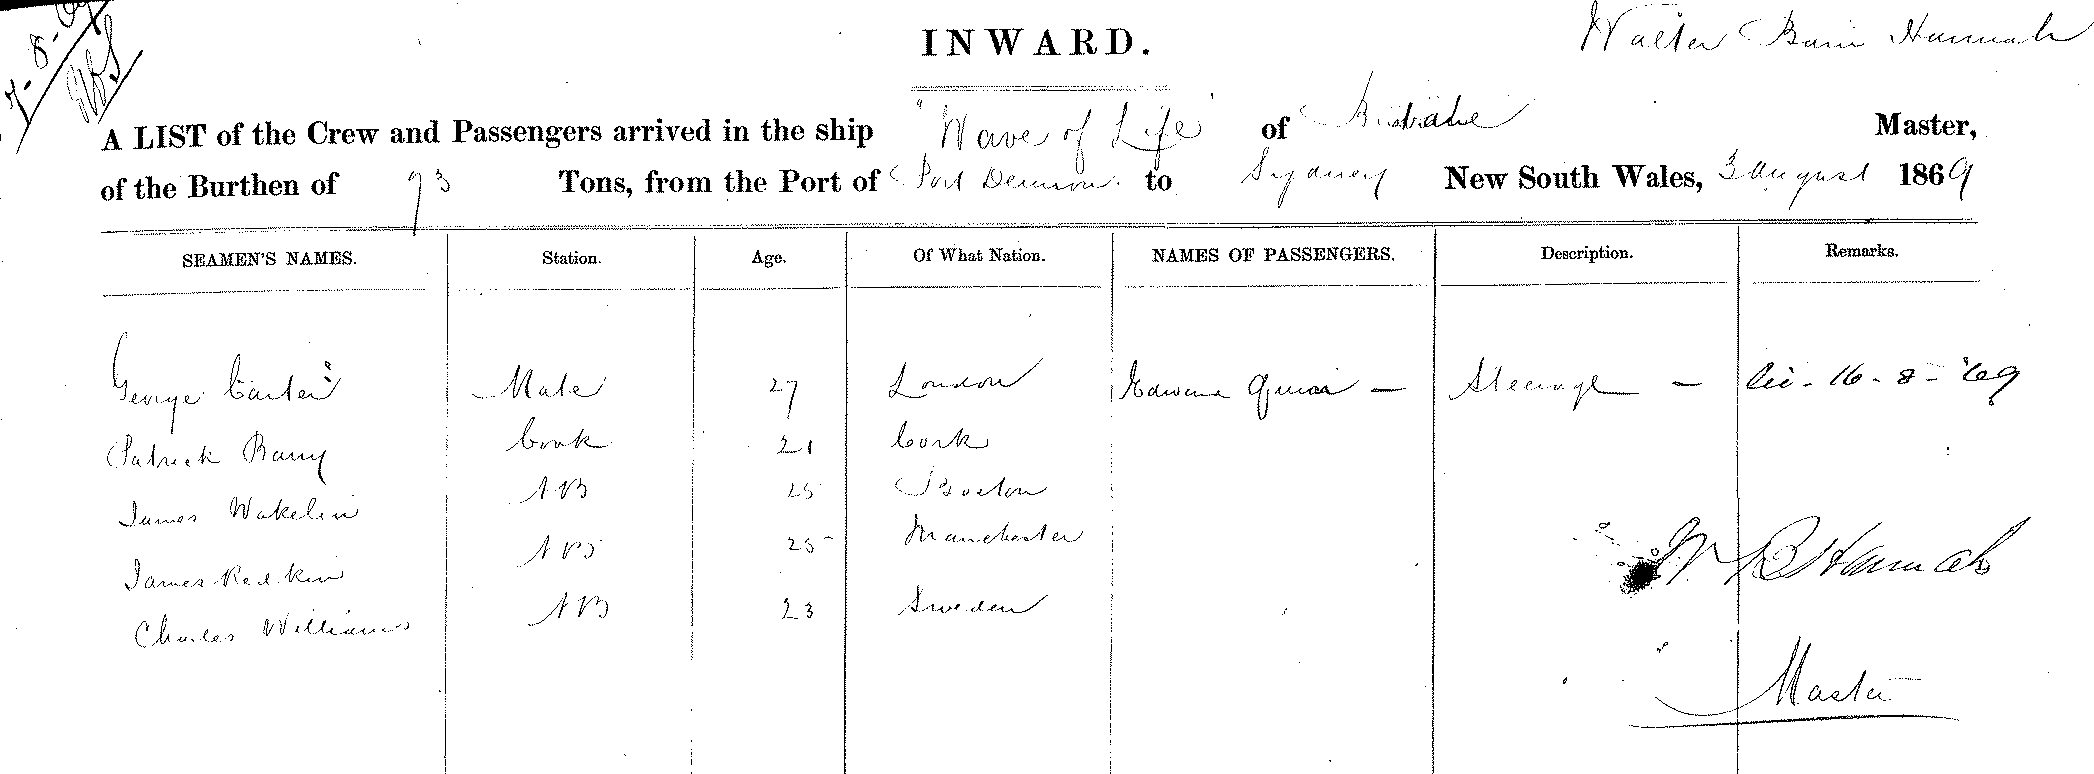 7-8-69
INWARD.
Walter Bain Hannah
A LIST of the Crew and Passengers arrived in the ship "Wave of Life" of Brisbane Master,
of the Burthen of 73 Tons, from the Port of Port Denison to Sydney New South Wales, 3 August 1869
SEAMEN'S NAMES. Station. Age. Of What Nation. NAMES OF PASSENGERS. Description. Remarks.
George Carter Mate 27 London Edward Quin — Steerage — 16-8-'69
Patrick Barry Cook 21 Cork
James Wakelin AB 25 Boston
James Redkin AB 25 Manchester
Charles Williams AB 23 Sweden
W B Hannah
Master